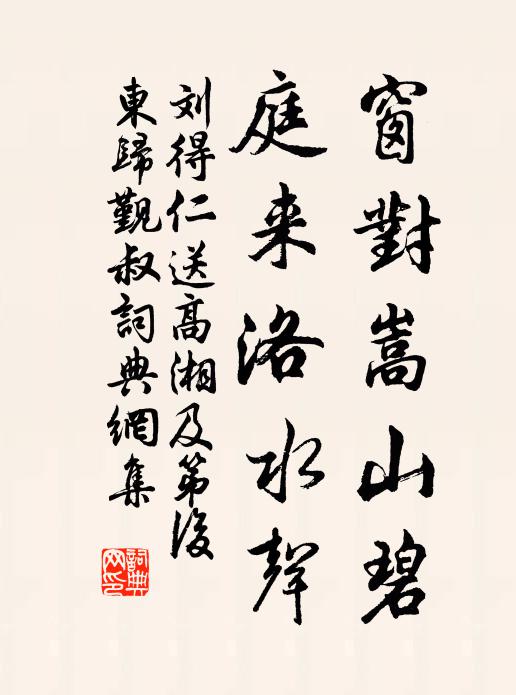 窗對嵩山碧
庭来洛水聲
刘得仁送高湘及第後
東歸覲叔詞典網集
詞典
网印